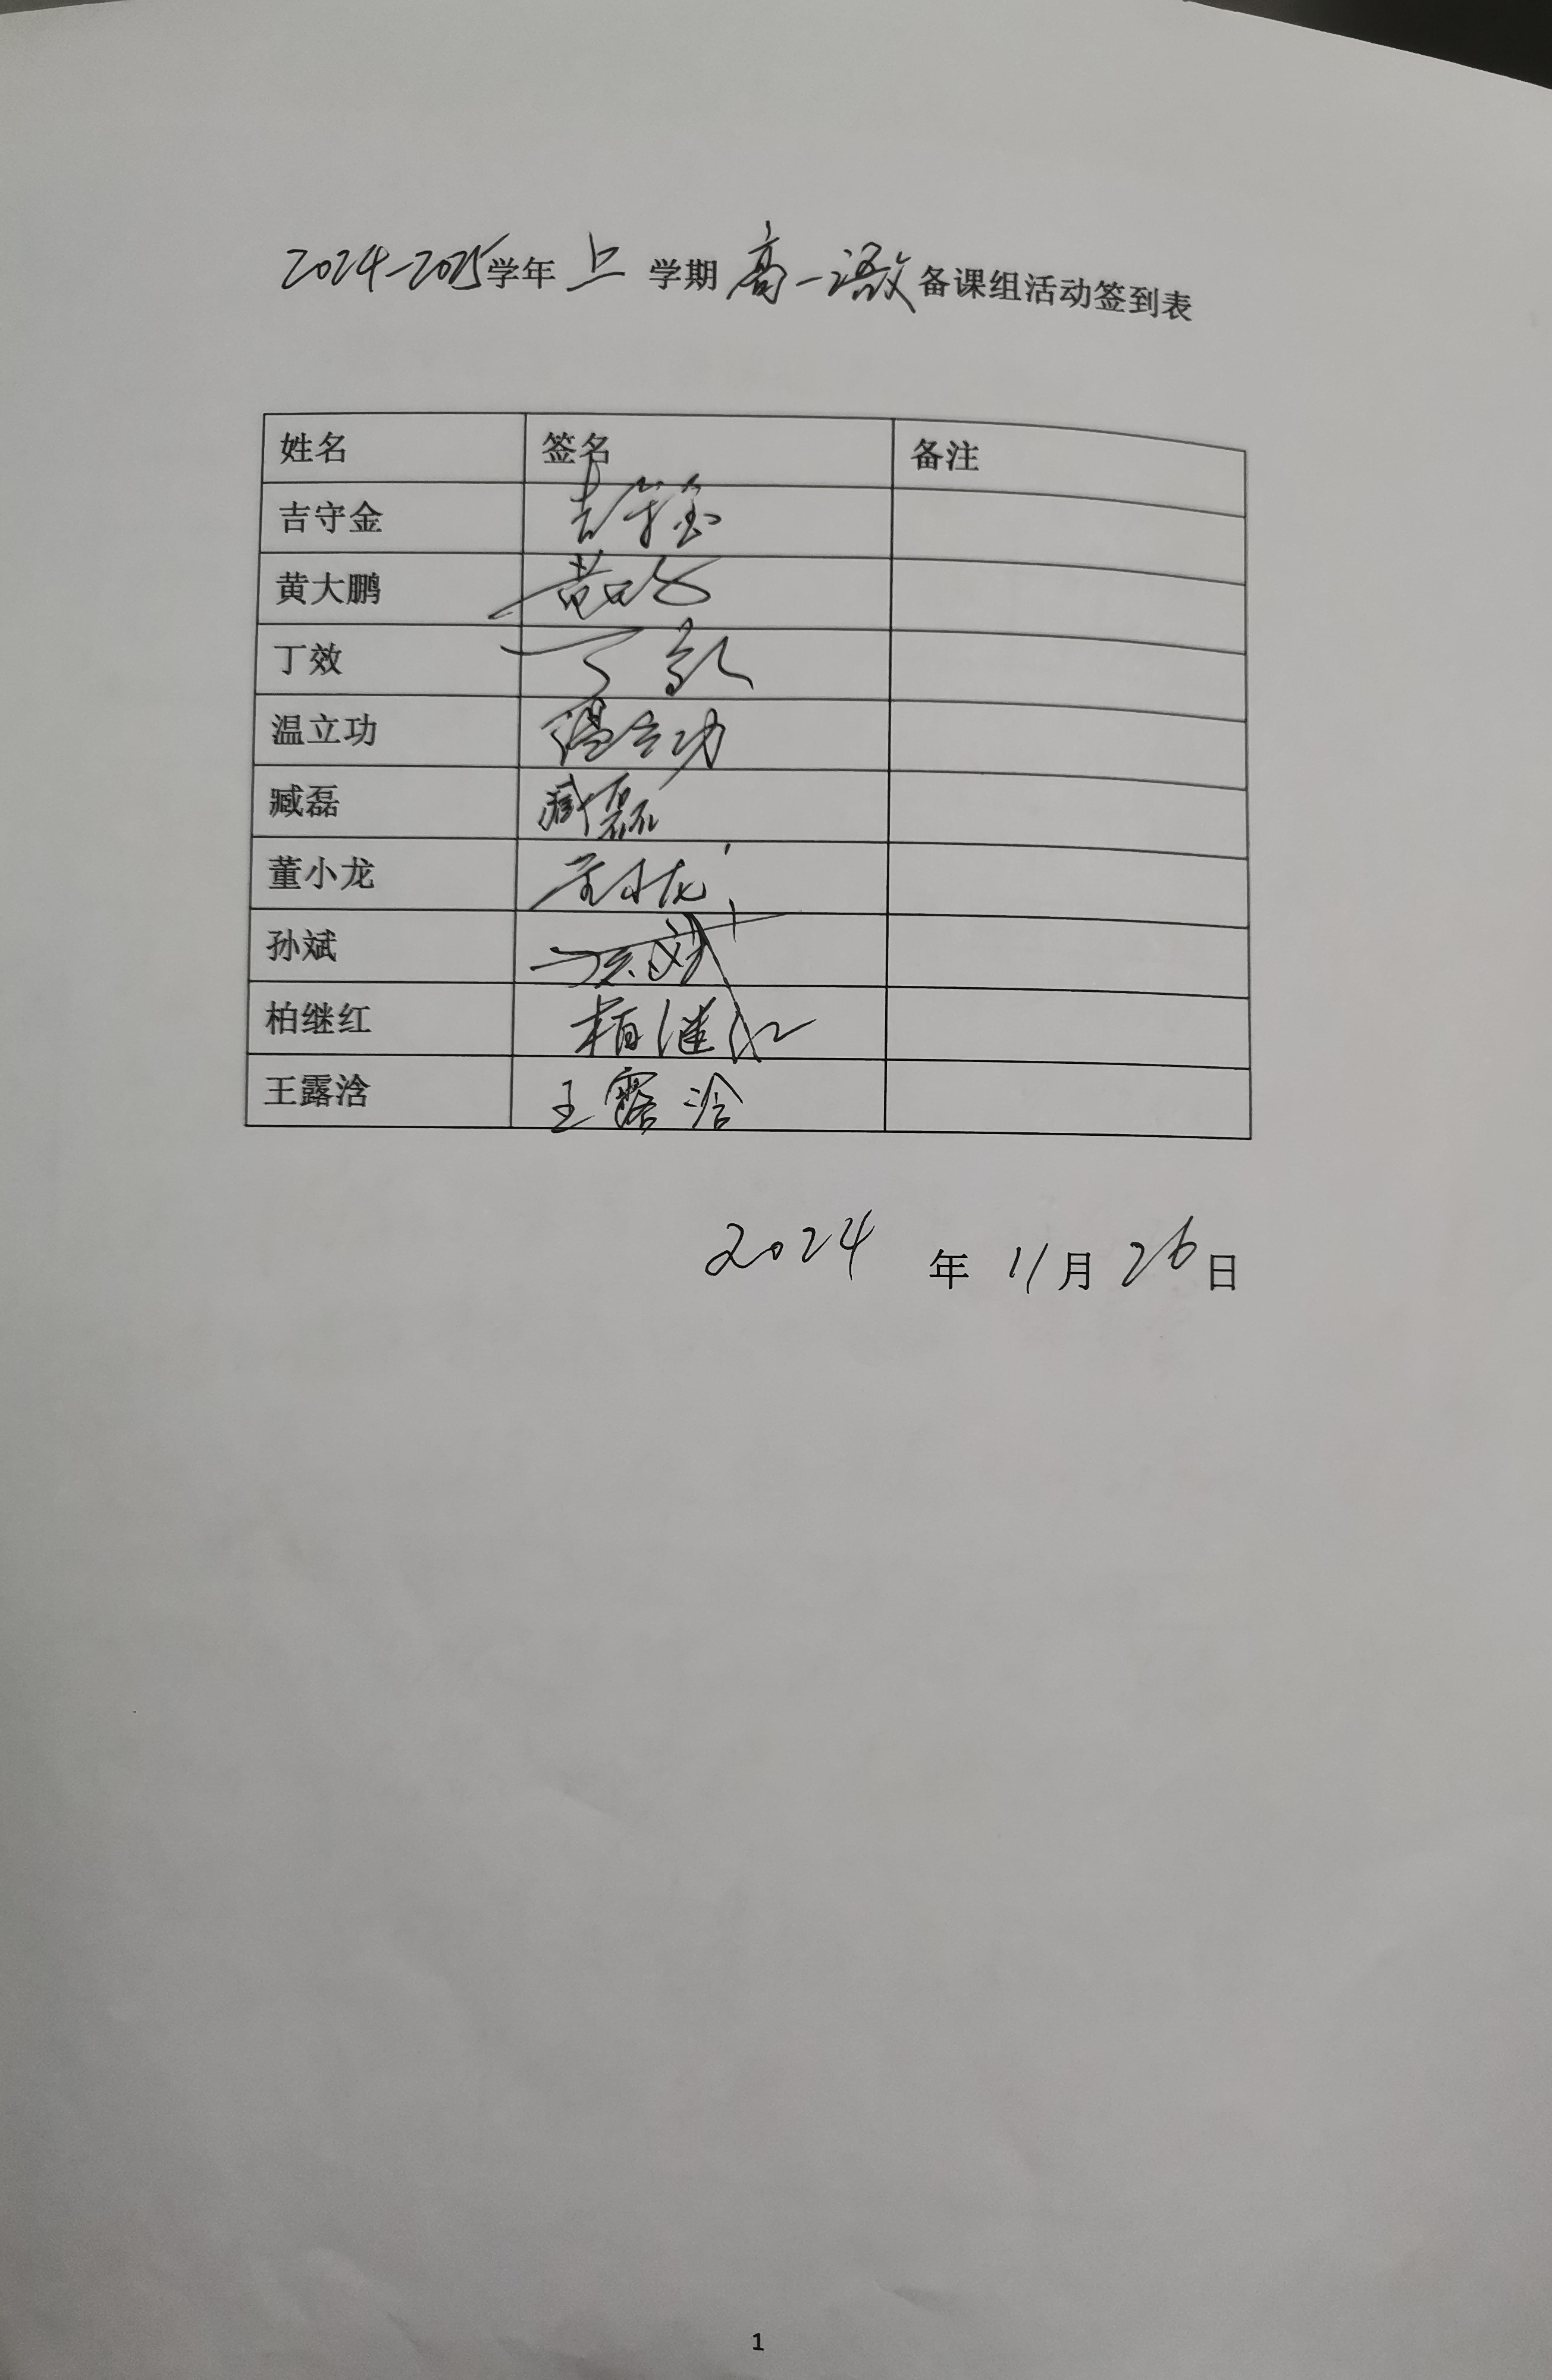 2024-2025学年 上 学期 高一语文备课组活动签到表
姓名 签名 备注
吉守金 吉守金
黄大鹏
丁效 丁效
温立功 温立功
臧磊 臧磊
董小龙 董小龙
孙斌 孙斌
柏继红 柏继红
王露浛 王露浛
2024 年 11月 26日
1